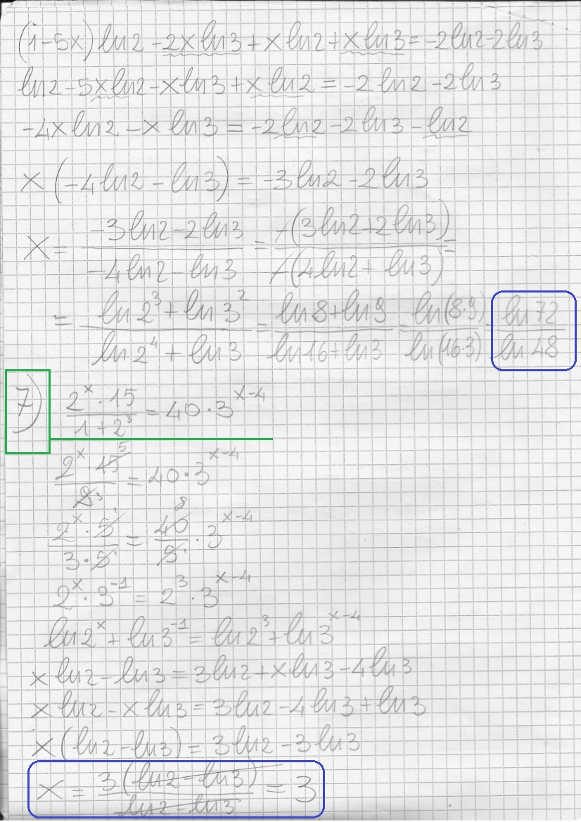 (1-5x)ln2-2xln3+xln2+xln3=-2ln2-2ln3
ln2-5xln2-xln3+xln2=-2ln2-2ln3
-4xln2-xln3=-2ln2-2ln3-ln2
x(-4ln2-ln3)=-3ln2-2ln3
x=\frac{-3ln2-2ln3}{-4ln2-ln3}=\frac{-(3ln2+2ln3)}{-(4ln2+ln3)}=
=\frac{ln2^3+ln3^2}{ln2^4+ln3}=\frac{ln8+ln9}{ln16+ln3}=\frac{ln(8·9)}{ln(16·3)}=\frac{ln72}{ln48}
7) \frac{2^x·15}{1+2^3}=40·3^{x-4}
\frac{2^x·15^5}{9_3}=40·3^{x-4}
\frac{2^x·5}{3·5}=\frac{40^8}{5}·3^{x-4}
2^x·3^{-1}=2^3·3^{x-4}
ln2^x+ln3^{-1}=ln2^3+ln3^{x-4}
xln2-ln3=3ln2+xln3-4ln3
xln2-xln3=3ln2-4ln3+ln3
x(ln2-ln3)=3ln2-3ln3
x=\frac{3(ln2-ln3)}{ln2-ln3}=3